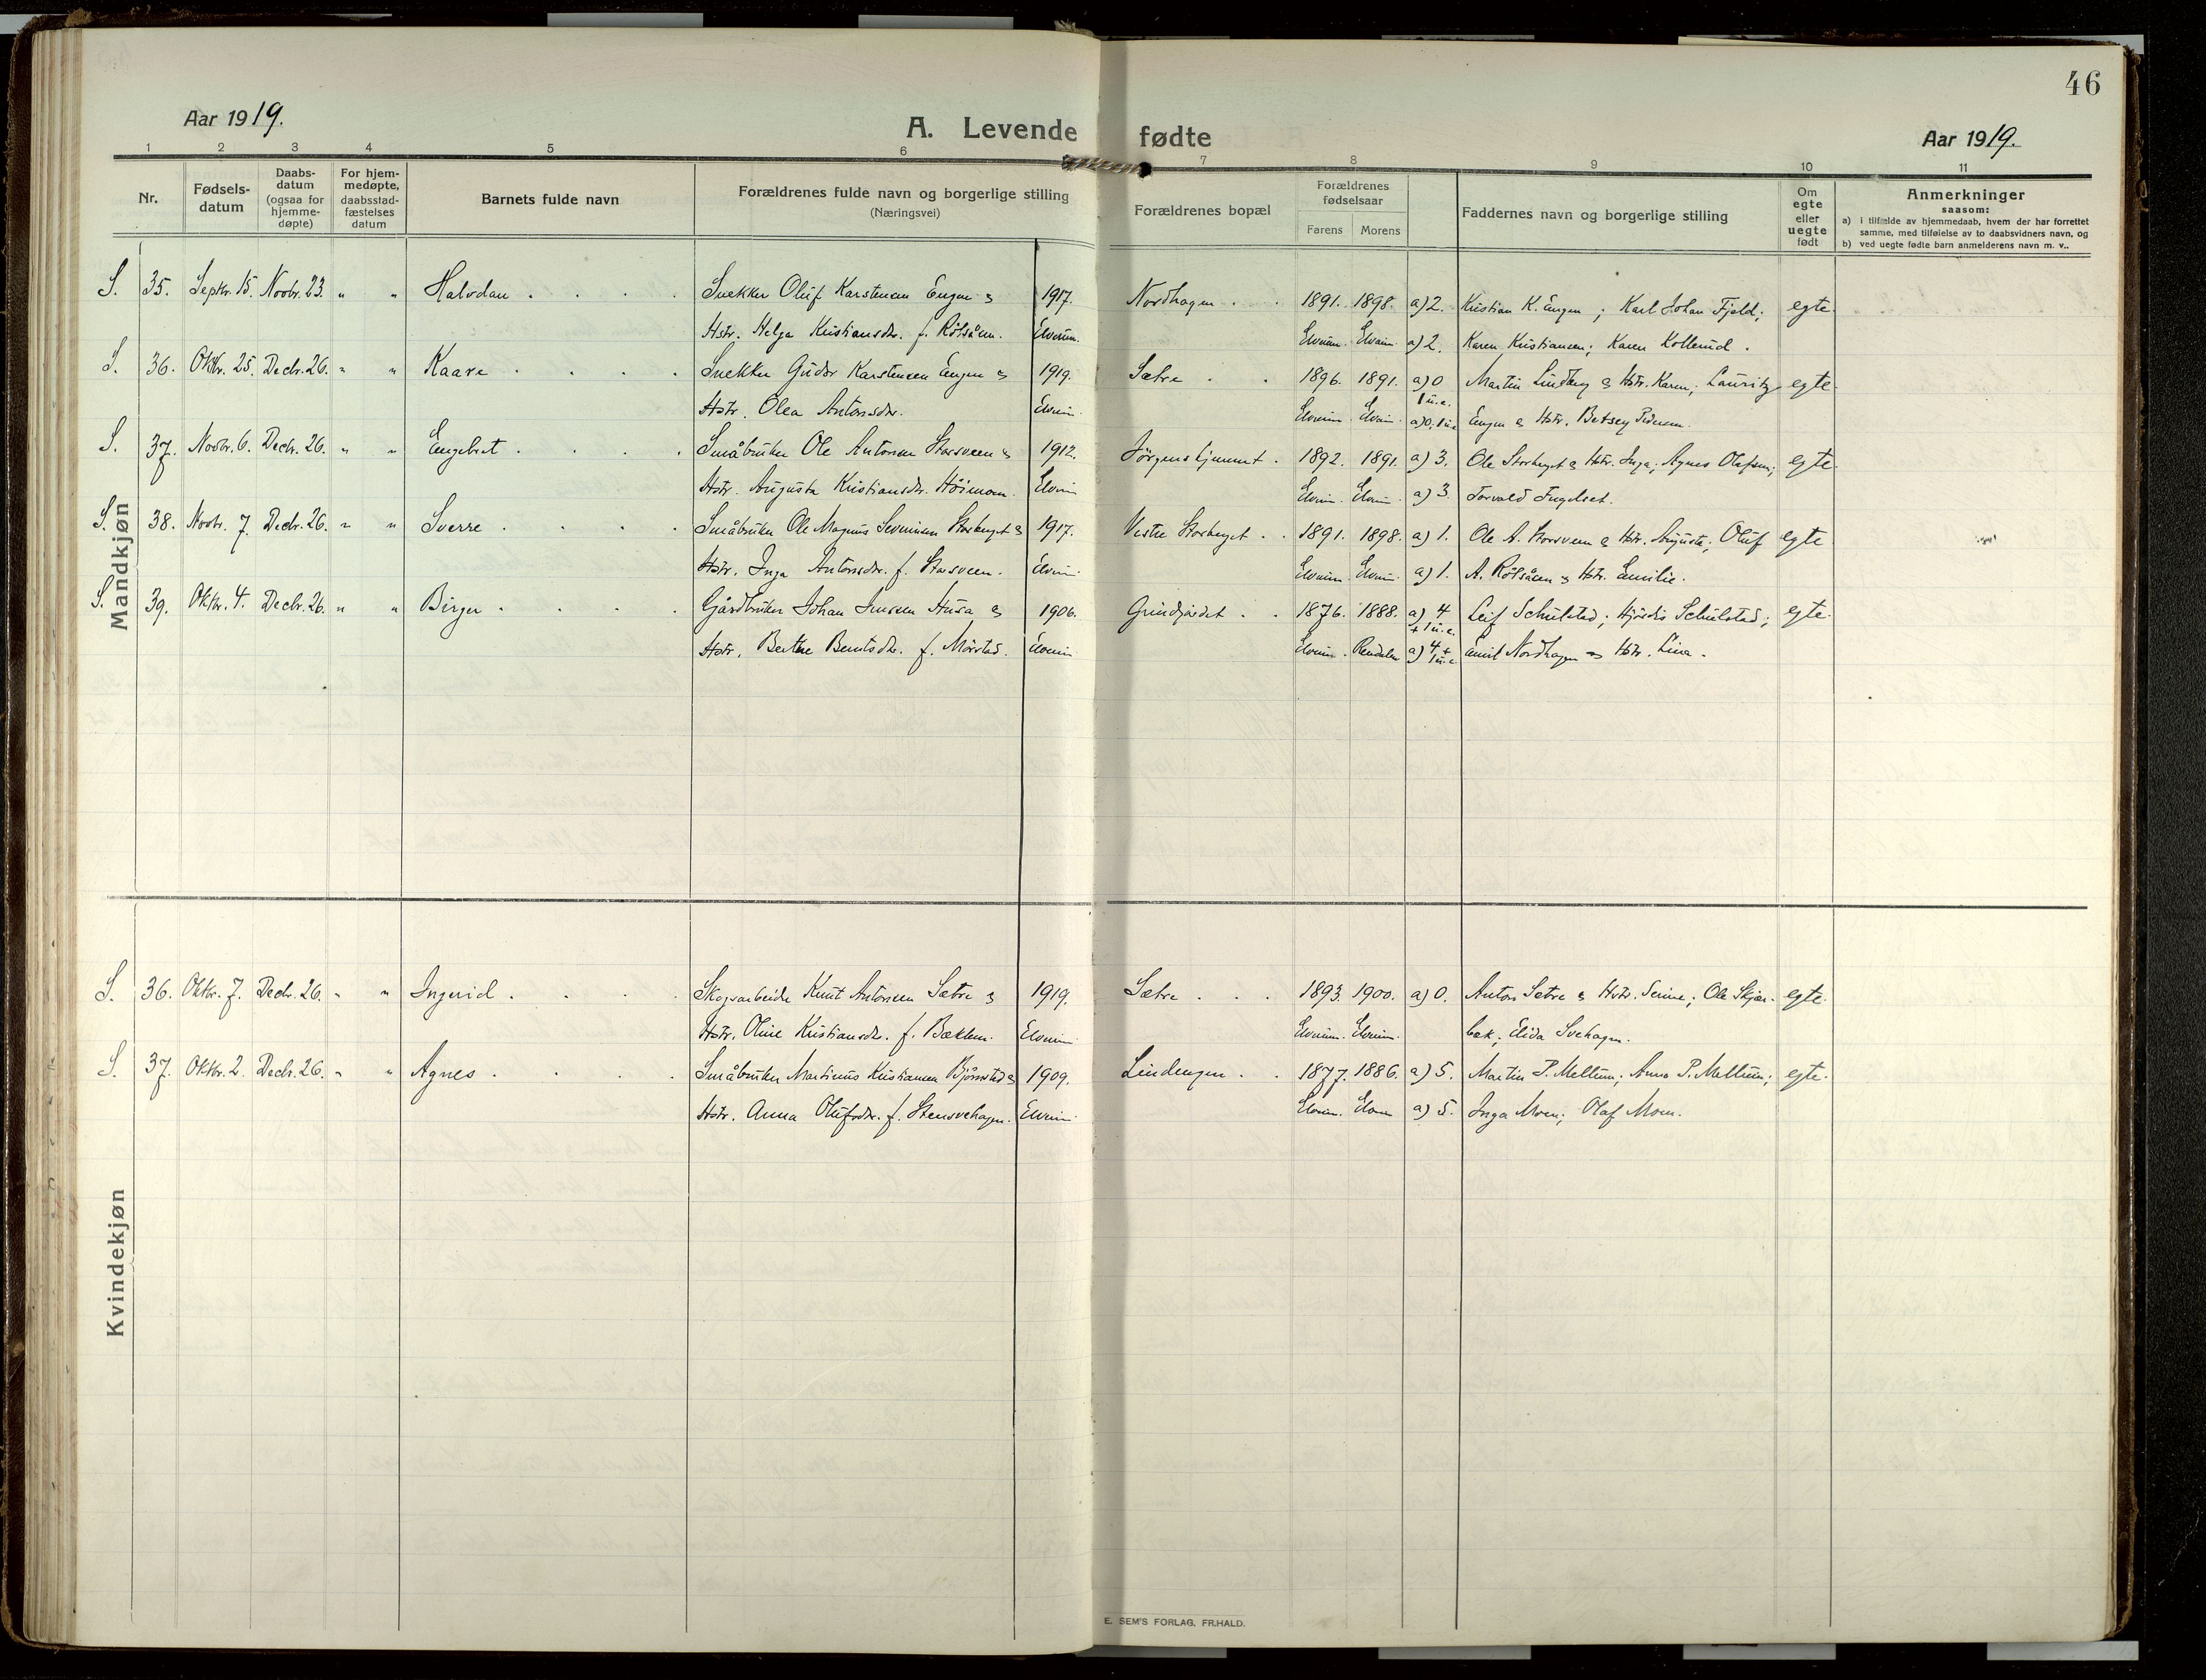 46
Aar 1919.
A. Levende fødte
Aar 1919.
1 2 3 4 5 6 7 8 9 10 11
Nr.
Fødsels-
datum
Daabs-
datum
(ogsaa for
hjemme-
døpte)
For hjem-
medøpte,
daabsstad-
fæstelses
datum
Barnets fulde navn
Forældrenes fulde navn og borgerlige stilling
(Næringsvei)
Forældrenes bopæl
Forældrenes
fødselsaar
Farens Morens
Faddernes navn og borgerlige stilling
Om
egte
eller
uegte
født
Anmerkninger
saasom:
a) i tilfælde av hjemmedaab, hvem der har forrettet
samme, med tilføielse av to daabsvidners navn, og
b) ved uegte fødte barn anmelderens navn m. v..
Mandkjøn
S. 35. Septbr. 15. Novbr. 23. " " Halvdan . . . . Snekker Oluf Karstensen Engen & 1917. Nordhagen . . 1891. 1898. a) 2. Kristian K. Engen ; Karl Johan Fjeld; egte.
Hstr. Helga Kristiansdr. f. Rötsåen. Elverum. Elverum. Elverum. a) 2. Karen Kristiansen; Karen Kollerud .
S. 36. Oktbr. 25. Decbr. 26. " " Kaare . . . . Snekker Gudbr Karstensen Engen & 1919. Sætre . . 1896. 1891. a) 0 1 u.e. Martin Lindberg & Hstr. Karen; Lauritz egte.
Hstr. Olea Antonsdr. Elverum Elverum Elverum a) 0. 1 u.e Engen & Hstr. Betsey Pedersen.
S. 37. Novbr. 6. Decbr. 26. " " Engebret . . . . Småbruker Ole Antonsen Storsveen & 1912. Jörgenshjemmet . 1892. 1891. a) 3. Ole Storberget & Hstr. Inga; Agnes Olafsen; egte.
Hstr. Augusta Kristiansdr. Höimoen. Elverum Elverum. Elverum. a) 3. Torvald Engelset.
S. 38. Novbr. 7. Decbr. 26. " " Sverre . . . . Småbruker Ole Magnus Severinsen Storberget & 1917. Vestre Storberget . . 1891. 1898. a) 1. Ole A. Storsveen & Hstr. Augusta; Oluf egte
Hstr. Inga Antonsdr. f. Storsveen. Elverum. Elverum. Elverum. a) 1. A. Rötsåen & Hstr. Emilie.
S. 39. Oktbr. 4. Decbr. 26. " " Birger . . . . Gårdbruker Johan Jensen Husa & 1906. Grindjordet . . 1876. 1888. a) 4 + 1 u.e. Leif Schulstad; Hjördis Schulstad; egte.
Hstr. Berthe Berntsdr. f. Mörstad. Elverum Elverum. Rendalen a) 4 + 1 u.e Emil Nordhagen & Hstr. Lina.
Kvindekjøn
S. 36. Oktbr. 7. Decbr. 26. " " Ingerid . . . . Skogsarbeider Knut Antonsen Sætre & 1919. Sætre . . . 1893. 1900. a) 0. Anton Sætre & Hstr. Serine; Ole Skjær- egte.
Hstr. Oline Kristiansdr. f. Bæklien. Elverum Elverum. Elverum. bæk; Elida Svehagen.
S. 37. Oktbr. 2. Decbr. 26. " " Agnes . . . . Småbruker Martinus Kristiansen Björnstad & 1909. Lindengen . . 1877. 1886. a) 5. Martin P. Mellum; Anna P. Mellum; egte.
Hstr. Anna Olufsdr. f. Stensvehagen. Elverum Elverum. Elverum a) 5. Inga Moen; Olaf Moen.
E. SEM'S FORLAG, FR.HALD.